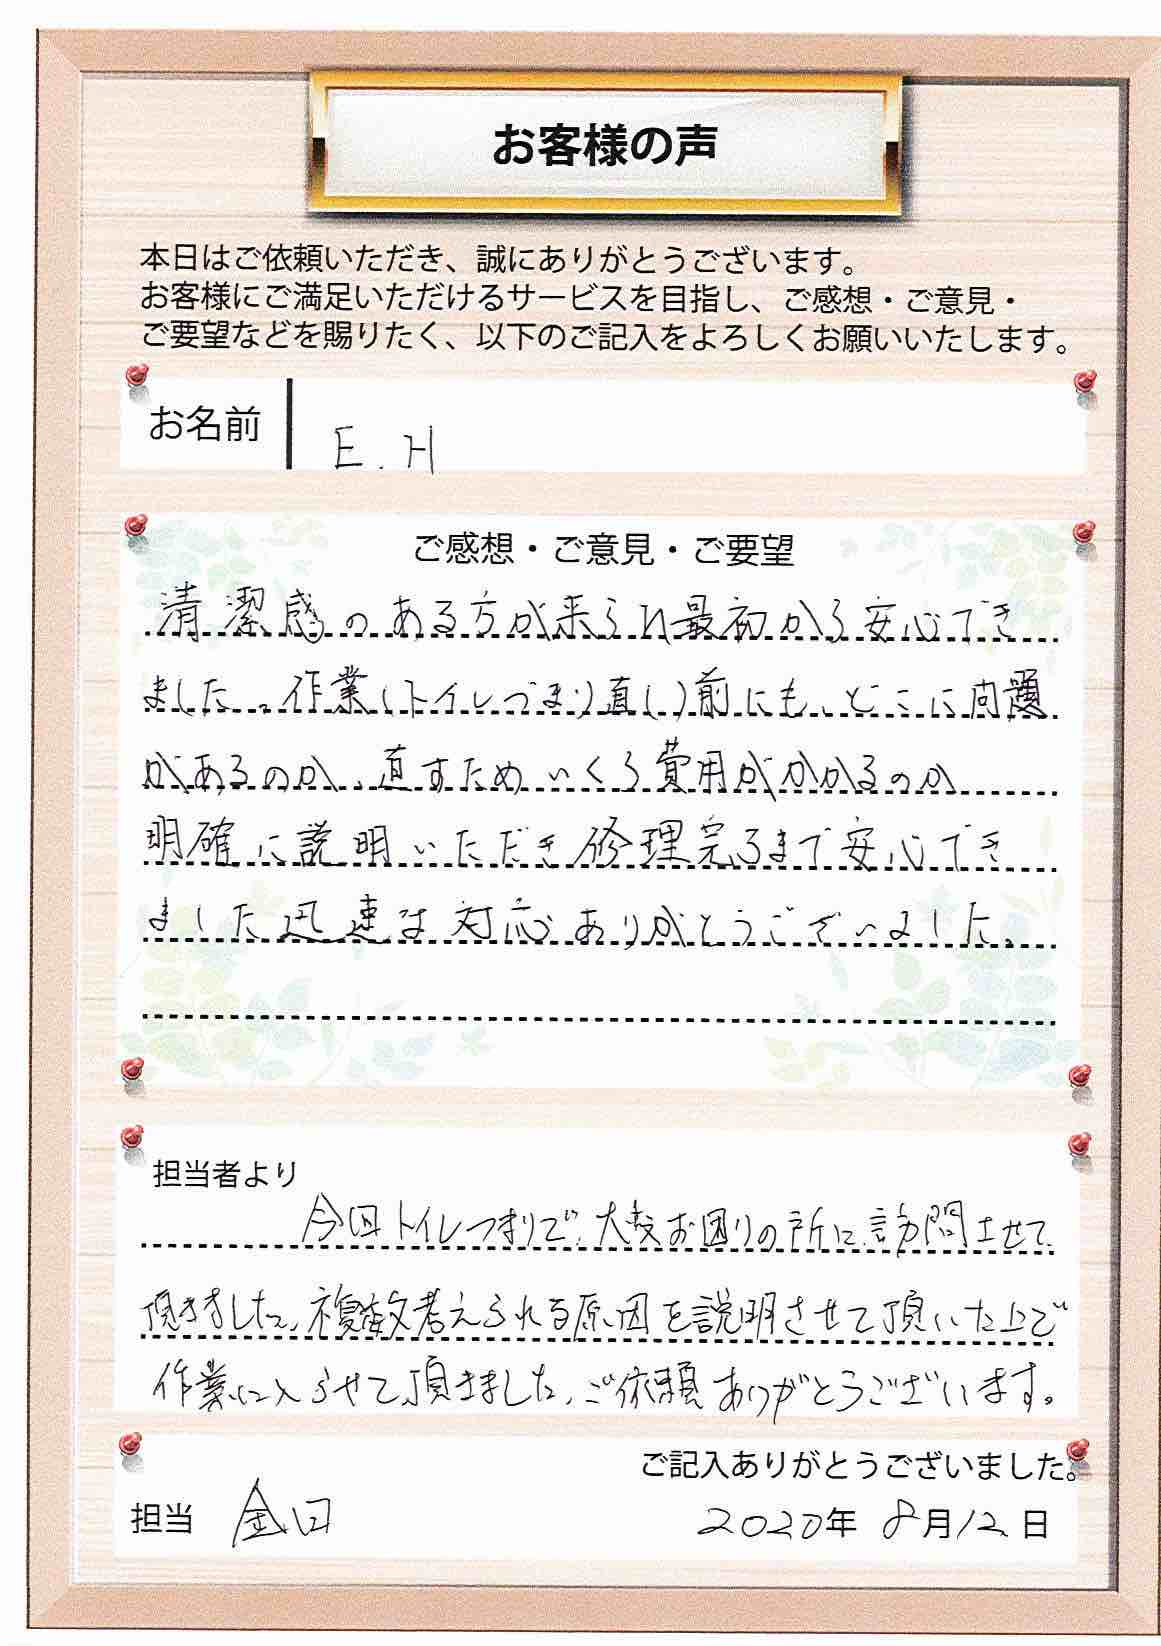 お客様の声
本日はご依頼いただき、誠にありがとうございます。
お客様にご満足いただけるサービスを目指し、ご感想・ご意見・
ご要望などを賜りたく、以下のご記入をよろしくお願いいたします。
お名前 E.H
ご感想・ご意見・ご要望
清潔感のある方が来られ最初から安心でき
ました。作業(トイレづまり直し)前にも、どこに問題
があるのか、直すためいくら費用がかかるのか
明確に説明いただき修理完了まで安心でき
ました迅速な対応ありがとうございました。
担当者より
今回トイレつまりで、大変お困りの所に訪問させて
頂きました。複数考えられる原因を説明させて頂いた上で
作業に入らせて頂きました。ご依頼ありがとうございます。
ご記入ありがとうございました。
担当 金田
2020年 8月12日